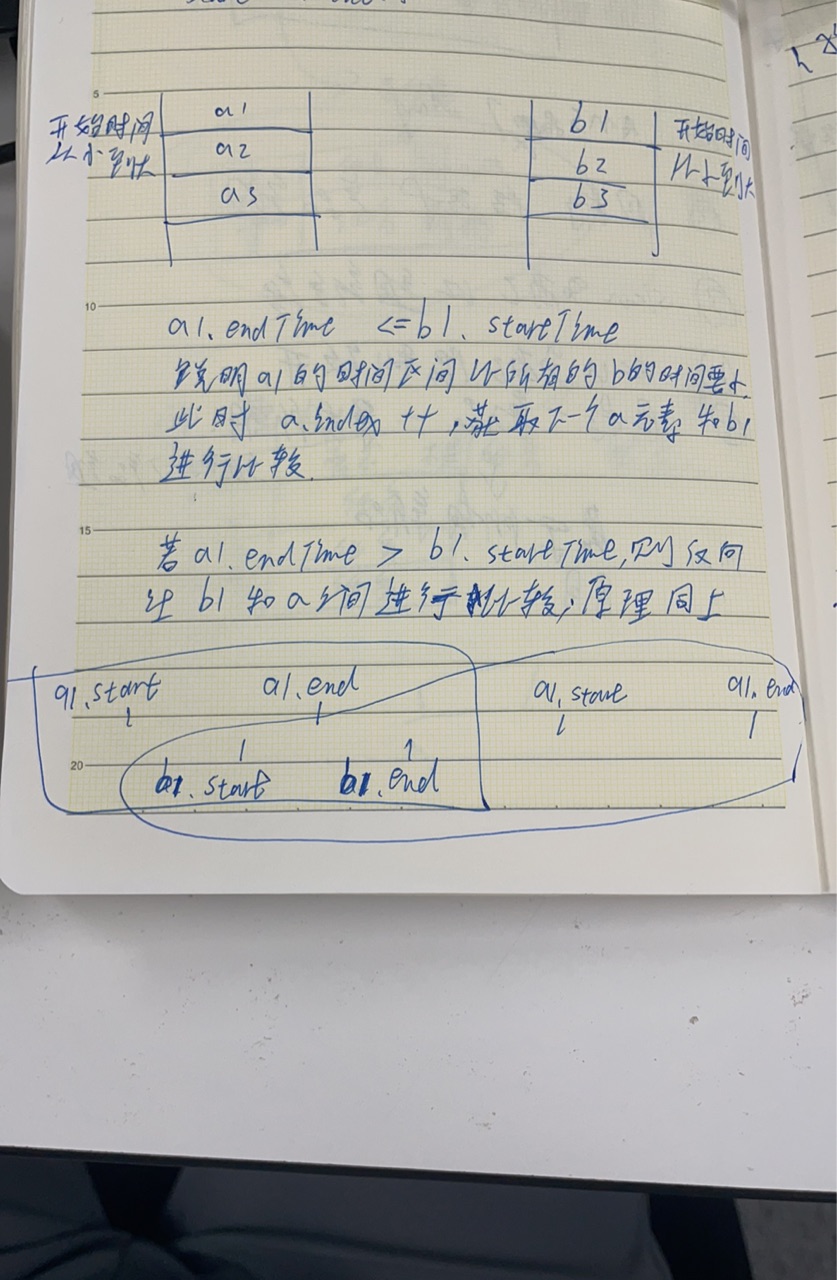 5
a1
b1
开始时间
从小到大
a2
b2
开始时间
从小到大
a3
b3
10
a1. endTime <= b1. startTime
说明a1的时间区间比所有的b的时间要小.
此时 a.index ++, 获取下一个a元素和b1
进行比较.
15
若 a1. endTime > b1. startTime, 则反向
让 b1 和 a 进行比较, 原理同上
a1.start a1.end a1.start a1.end
20
b1.start b1.end